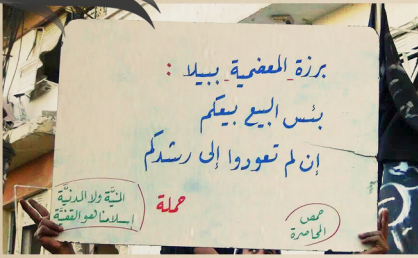 برزة - المعضمية - ببيلا :
بئس البيع بيعكم
إن لم تعودوا إلى رشدكم
حملة
المنيَّة ولا المدنيَّة
إسلامنا هو القضيَّة
حمص
المحاصرة